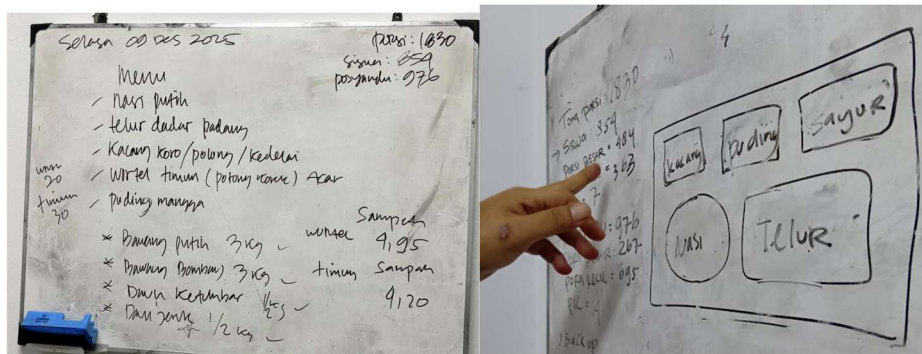 Selasa 09 Des 2025
porsi: 1830
siswa: 854
posyandu: 976
Menu
- nasi putih
- telur dadar padang
- Kacang koro/polong/kedelai
- wortel timun (potong korek) Acar
- puding mangga
wortel
20
timun
30
* Bawang putih 3 kg
* Bawang Bombay 3 kg
* Daun Ketumbar 1/2 kg
* Daun jeruk 1/2 kg
Sampah
wortel 4,95
timun Sampah
4,20
Total porsi: 1830
> Siswa: 854
porsi BESAR = 484
= 363
= 7
= 976
= 267
porsi kecil = 695
PIC = 14
> Backup
kacang
puding
Sayur
Nasi
TELUR